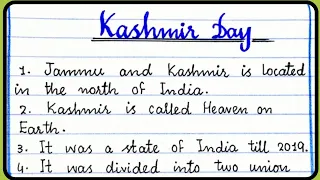 Kashmir Day
1. Jammu and Kashmir is located
in the north of India.
2. Kashmir is called Heaven on
Earth.
3. It was a state of India till 2019.
4. It was divided into two union